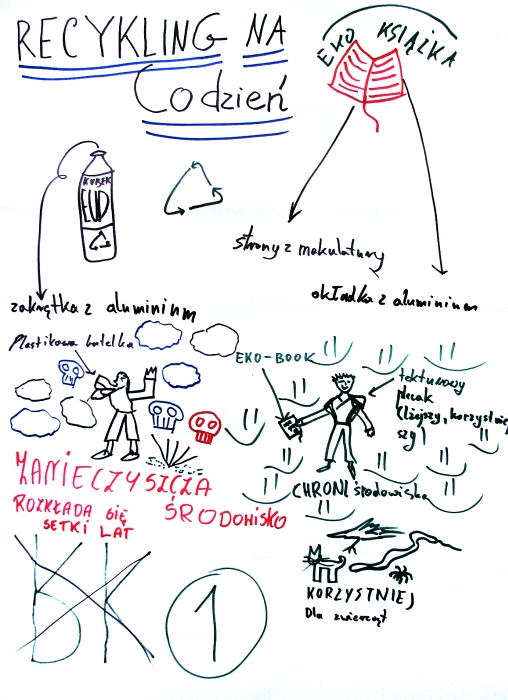 RECYKLING NA
Codzień
EKO KSIĄŻKA
KUBEK
EUD
strony z makulatury
okładka z aluminium
zakrętka z aluminium
Plastikowa butelka
EKO-BOOK
tekturowy
plecak
(lżejszy, korzystniej
szy)
ZANIECZYSZCZA
ŚRODOWISKO
ROZKŁADA SIĘ
SETKI LAT
CHRONI środowisko
KORZYSTNIEJ
Dla zwierząt
BK
1